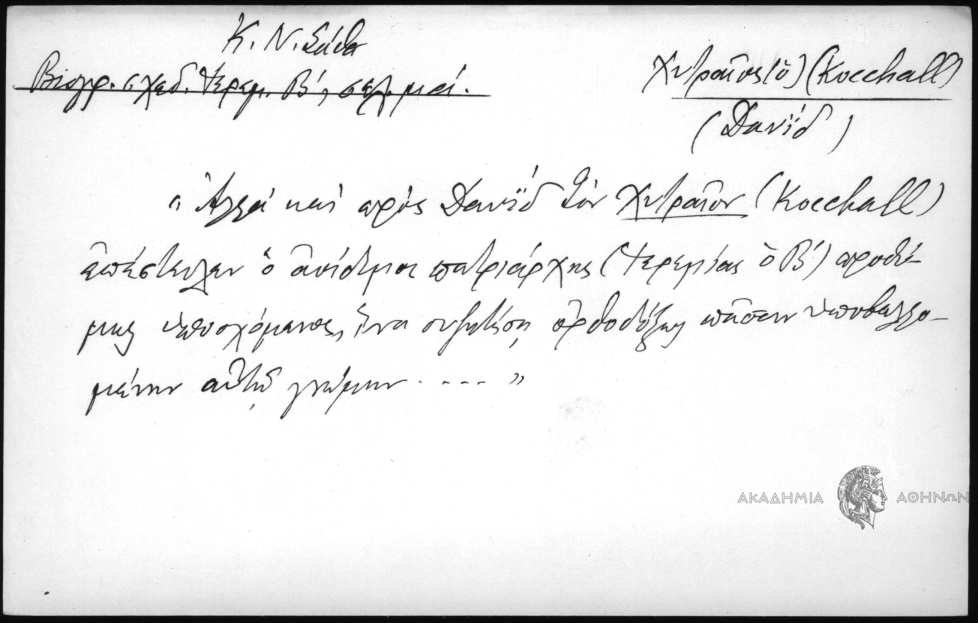 Κ. Ν. Σάθα
Βιογρ. σχεδ. Ἱερεμ. Β', σελ. μα'.
Χυτραῖος (ὁ) (Kocchall)
(Δαυΐδ)
« Ἀλλὰ καὶ πρὸς Δαυῒδ τὸν Χυτραῖον (Kocchall)
ἀπέστειλεν ὁ ἀοίδιμος πατριάρχης (Ἱερεμίας ὁ Β') προθύ-
μως ὑποσχόμενος, ἵνα συζητήσῃ ὀρθοδόξως πᾶσαν ὑποβαλλο-
μένην αὐτῷ γνώμην .... »
ΑΚΑΔΗΜΙΑ ΑΘΗΝΩΝ